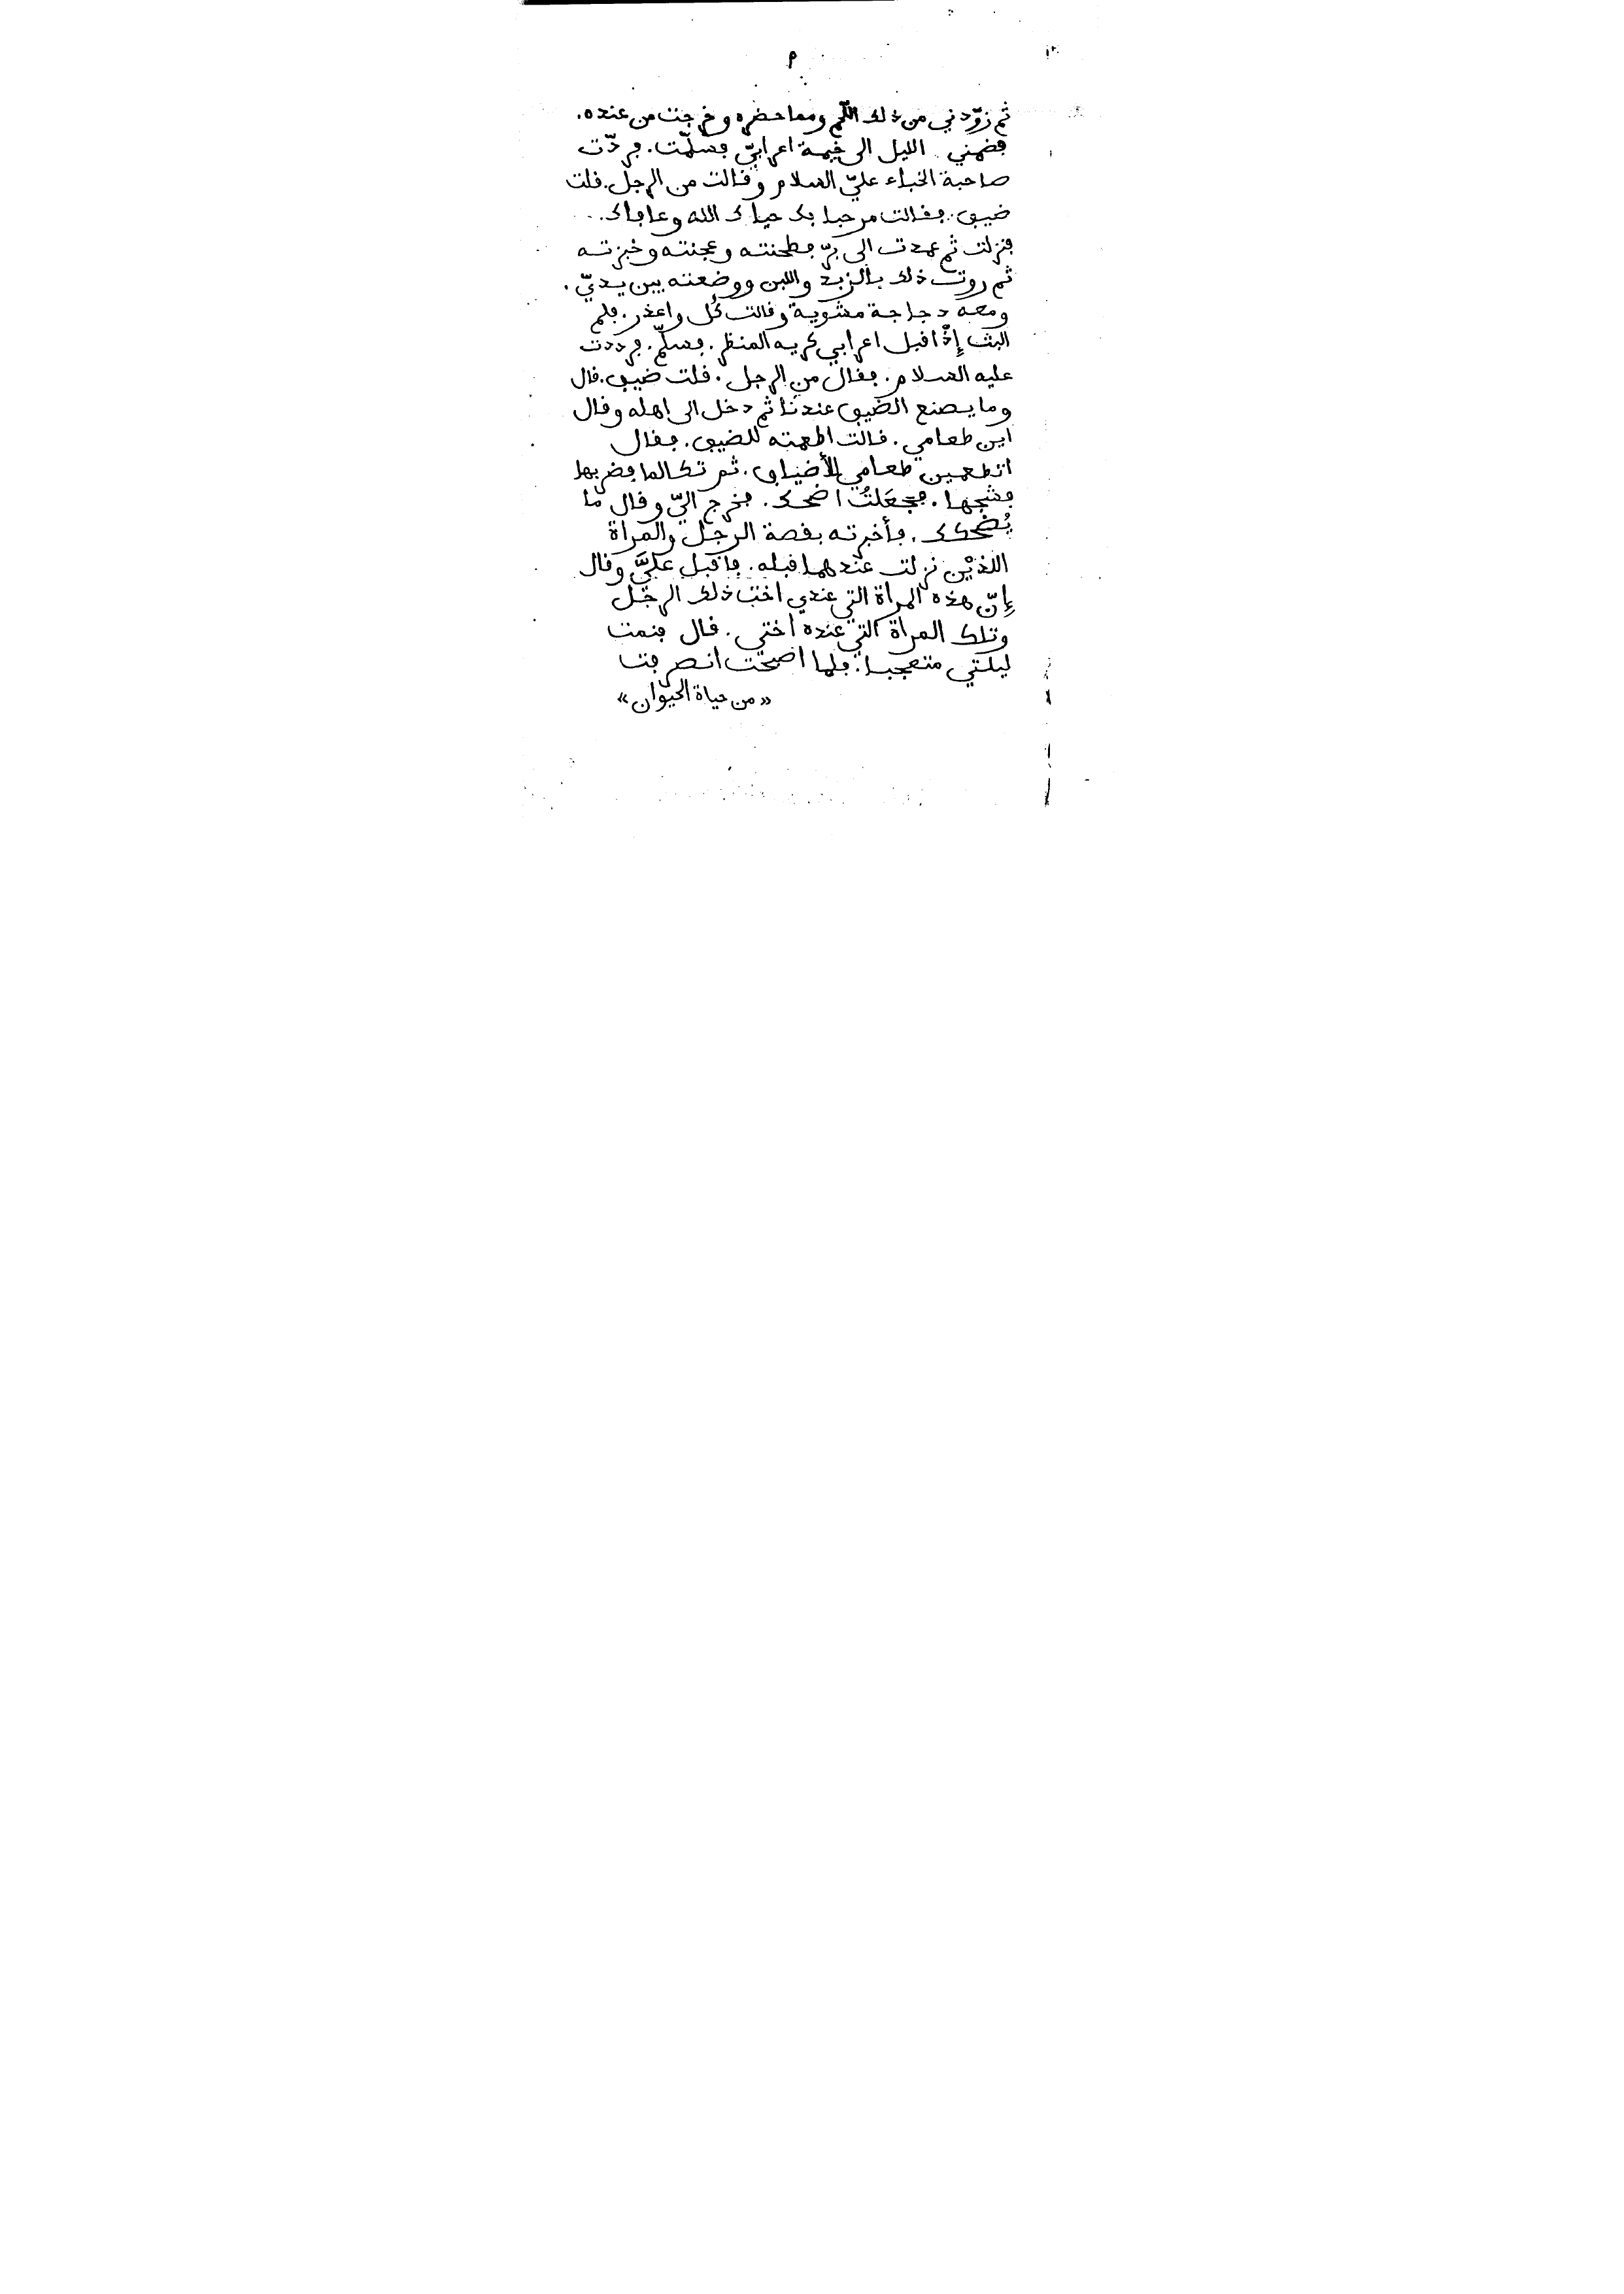 م
ثم زوّدني من ذلك اللحم ومما حضره وخرجت من عنده.
فضمني الليل الى خيمة اعرابيّ فسلّمت. فردّت
صاحبة الخباء عليّ السلام وقالت من الرجل. قلت
ضيف. فقالت مرحبا بك حياك الله وعافاك.
فنزلت ثم عمدت الى برّ فطحنته وعجنته وخبزته
ثم روت ذلك بالزبد واللبن ووضعته بين يديّ.
ومعه دجاجة مشوية وقالت كُل واعذر. فلم
البث إذْ اقبل اعرابي كريه المنظر. فسلّم. فرددت
عليه السلام. فقال من الرجل. قلت ضيف. قال
وما يصنع الضيف عندنا ثم دخل الى اهله وقال
اين طعامي. قالت اطعمته للضيف. فقال
اتطعمين طعامي للأضياف. ثم تكالما فضربها
فشجها. فجَعَلتُ اضحك. فخرج اليّ وقال ما
يُضحكك. فأخبرته بقصة الرجل والمراة
اللذيْن نزلت عندهما قبله. فاقبل عليَّ وقال
إنّ هذه المراة التي عندي اخت ذلك الرجل
وتلك المرأة التي عنده أختي. قال فنمت
ليلتي متعجبا. فلما اصبحت انصرفت
«من حياة الحيوان»